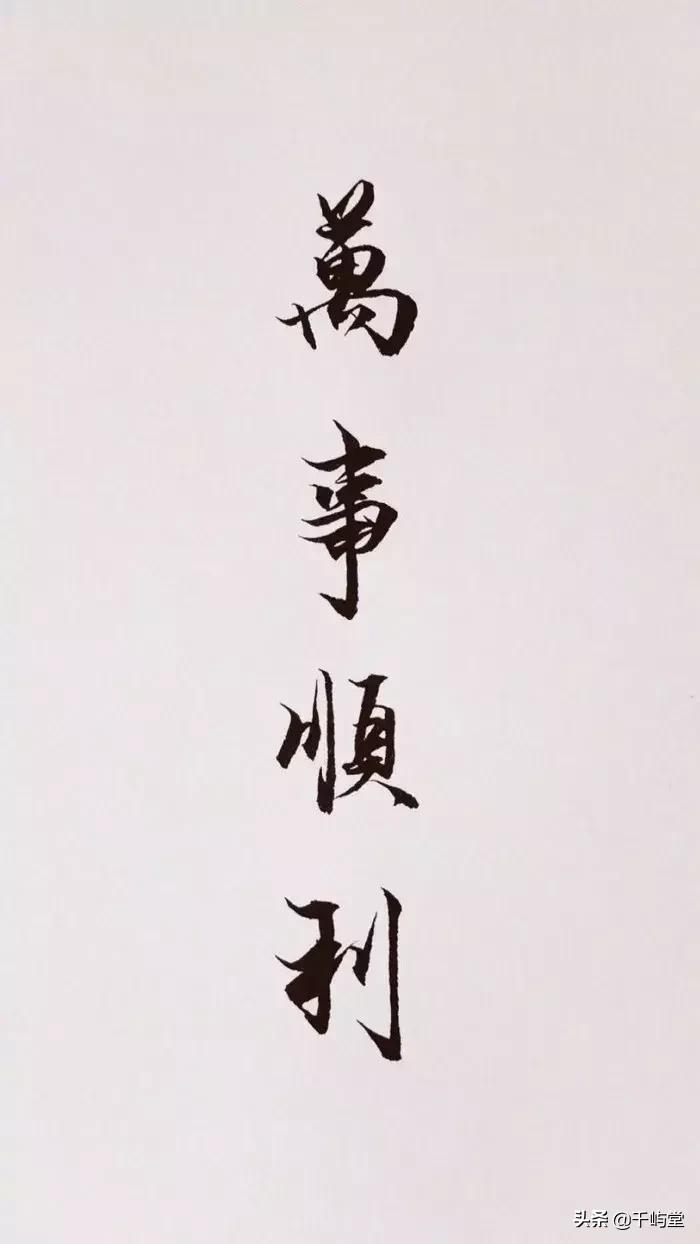 萬事順利
头条 @千屿堂